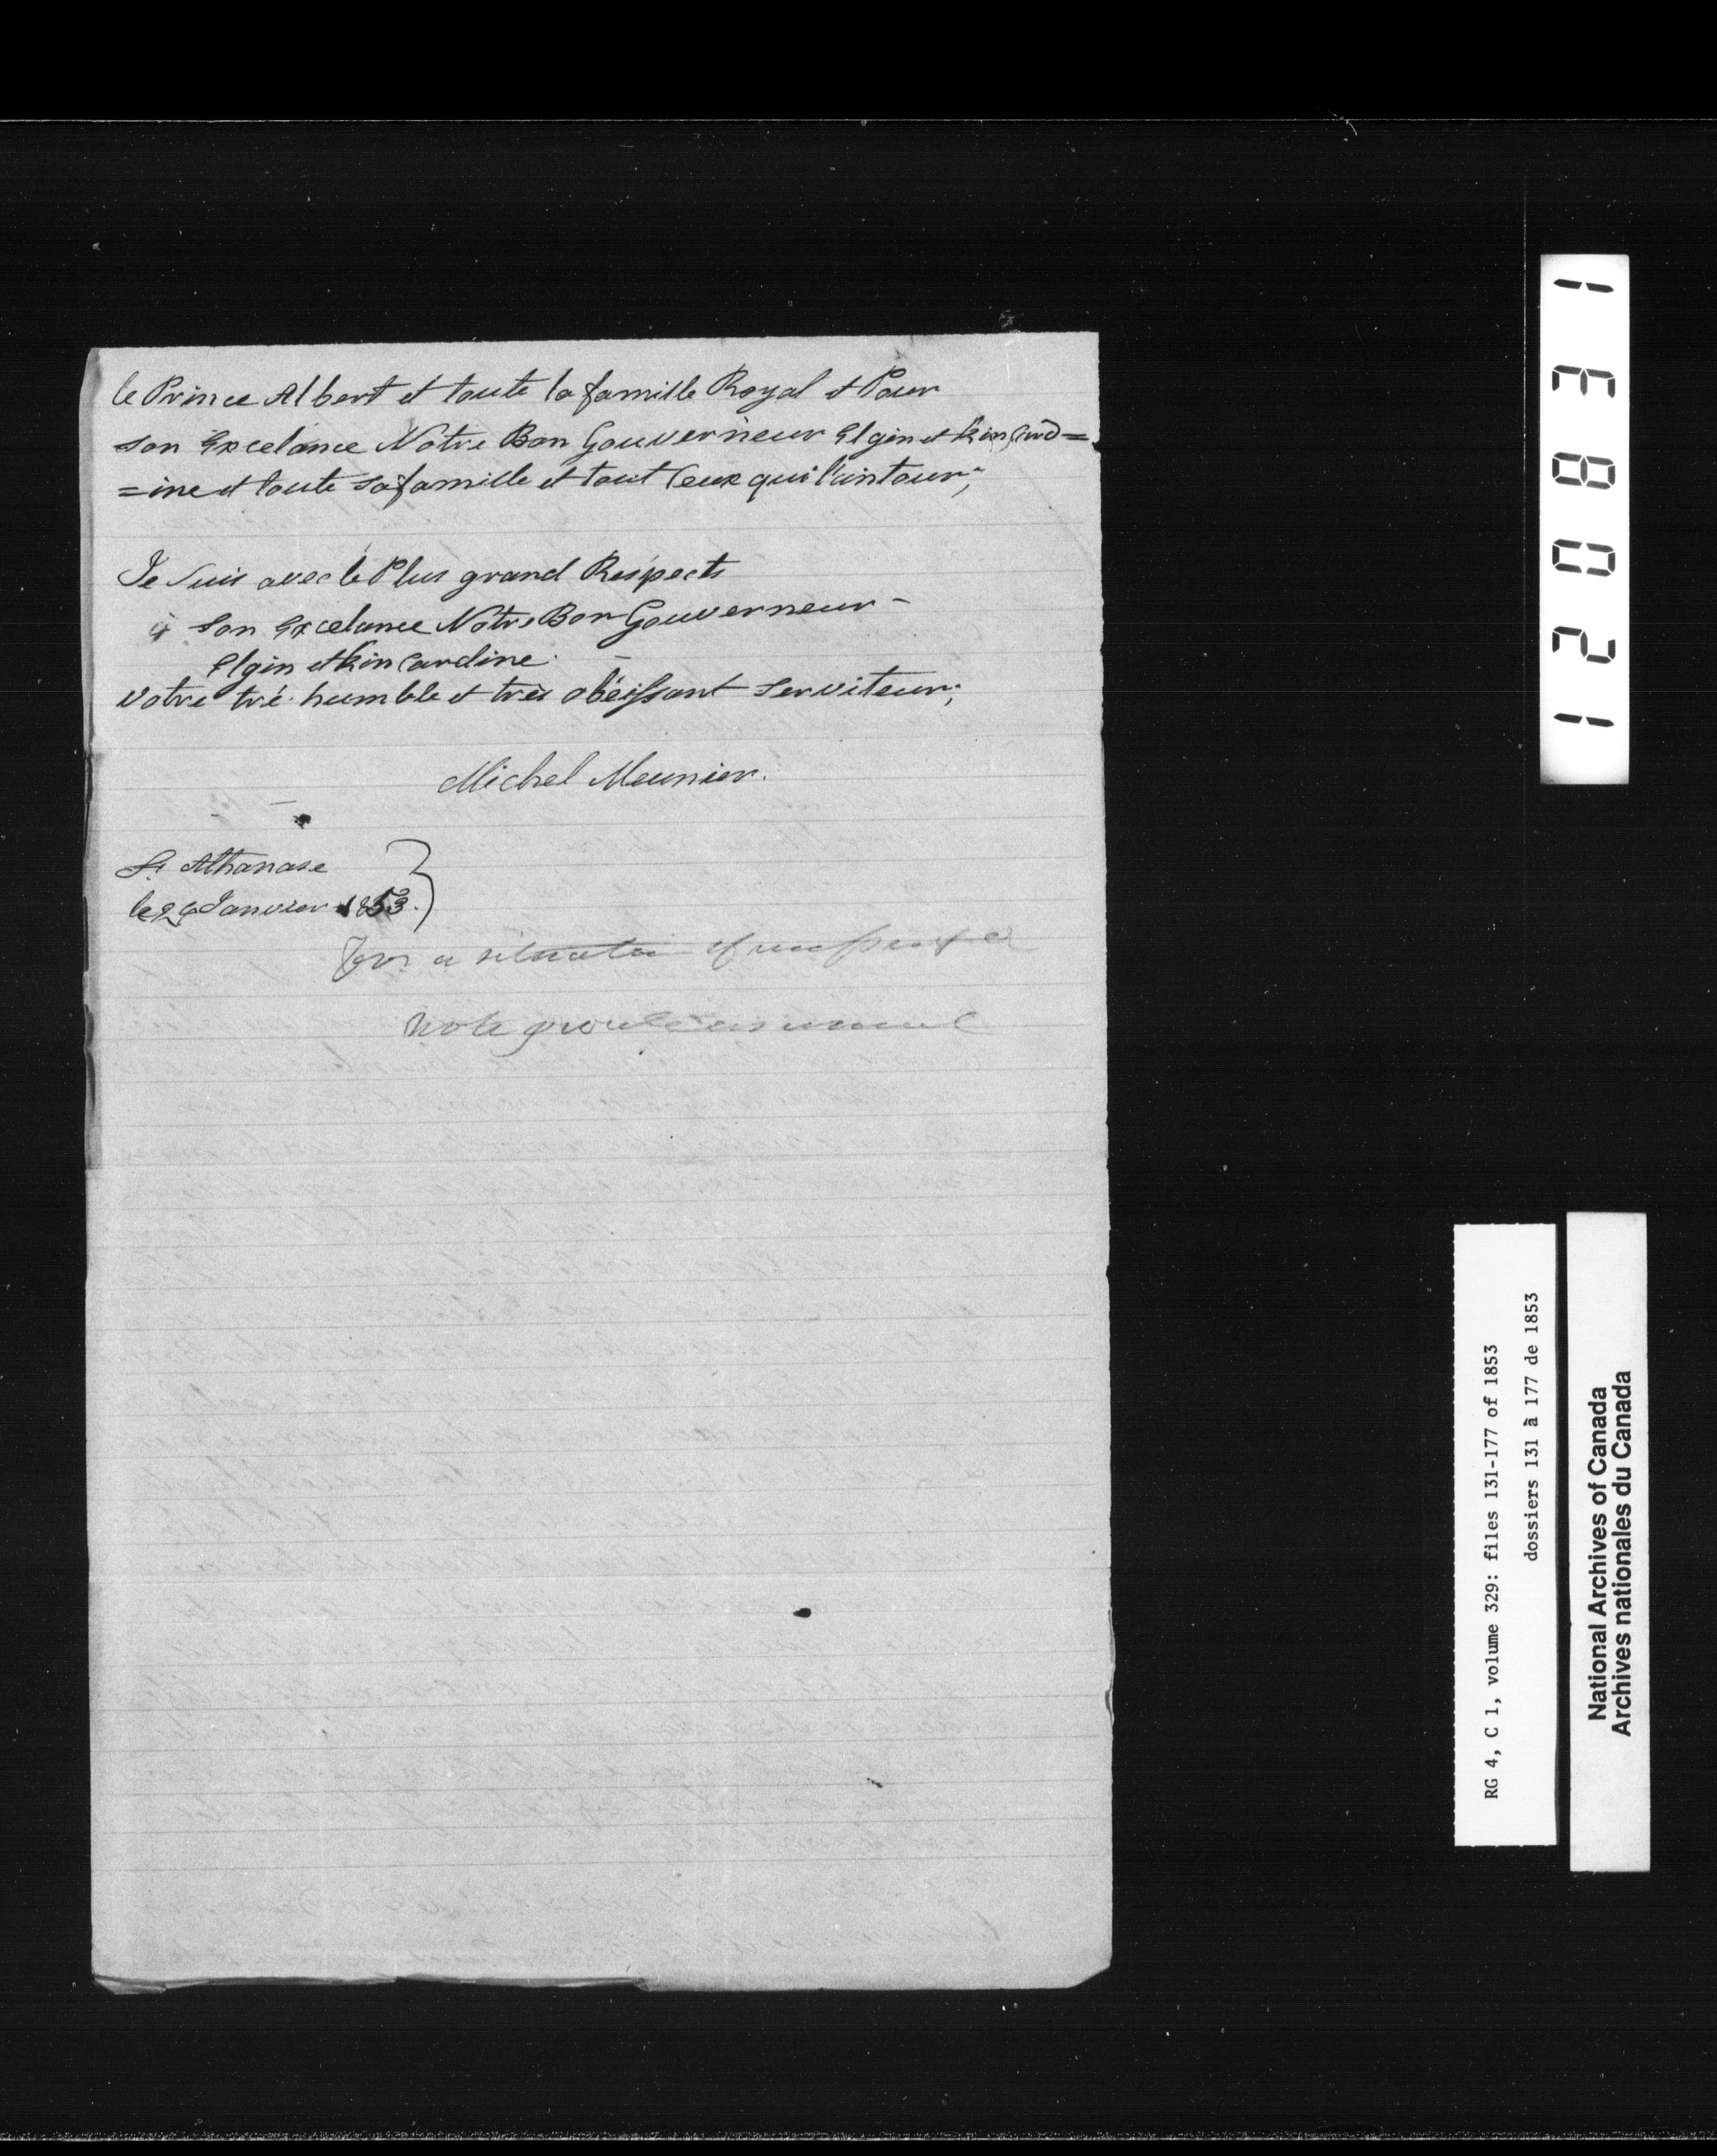 le Prince Albert et toute la famille Royal et Pour
son Excelance Notre Bon Gouverneur Elgin et kincard=
=ine et toute sa famille et tout Ceux qui l'antour;
Je suis avec le Plus grand Respects
à son Excelance Notre Bon Gouverneur -
Elgin et kincardine.
votre tré humble et très obéissant serviteur;
Michel Meunier.
St Athanase
le 26 Janvier 1853.
For a situation of
Note
12083 1
RG 4, C 1, volume 329: files 131-177 of 1853
dossiers 131 à 177 de 1853
National Archives of Canada
Archives nationales du Canada